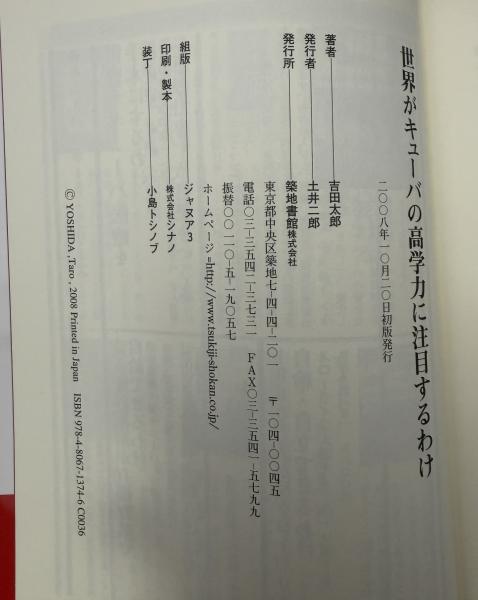 世界がキューバの高学力に注目するわけ
二〇〇八年一〇月二〇日初版発行
著者――――吉田太郎
発行者―――土井二郎
発行所―――築地書館株式会社
東京都中央区築地七-四-四-二〇一　〒一〇四-〇〇四五
電話〇三-三五四二-三七三一　FAX〇三-三五四一-五七九九
振替〇〇一一〇-五-一九〇五七
ホームページ=http://www.tsukiji-shokan.co.jp/
組版――――ジャヌア3
印刷・製本――株式会社シナノ
装丁――――小島トシノブ
© YOSHIDA ,Taro , 2008 Printed in Japan　ISBN 978-4-8067-1374-6 C0036